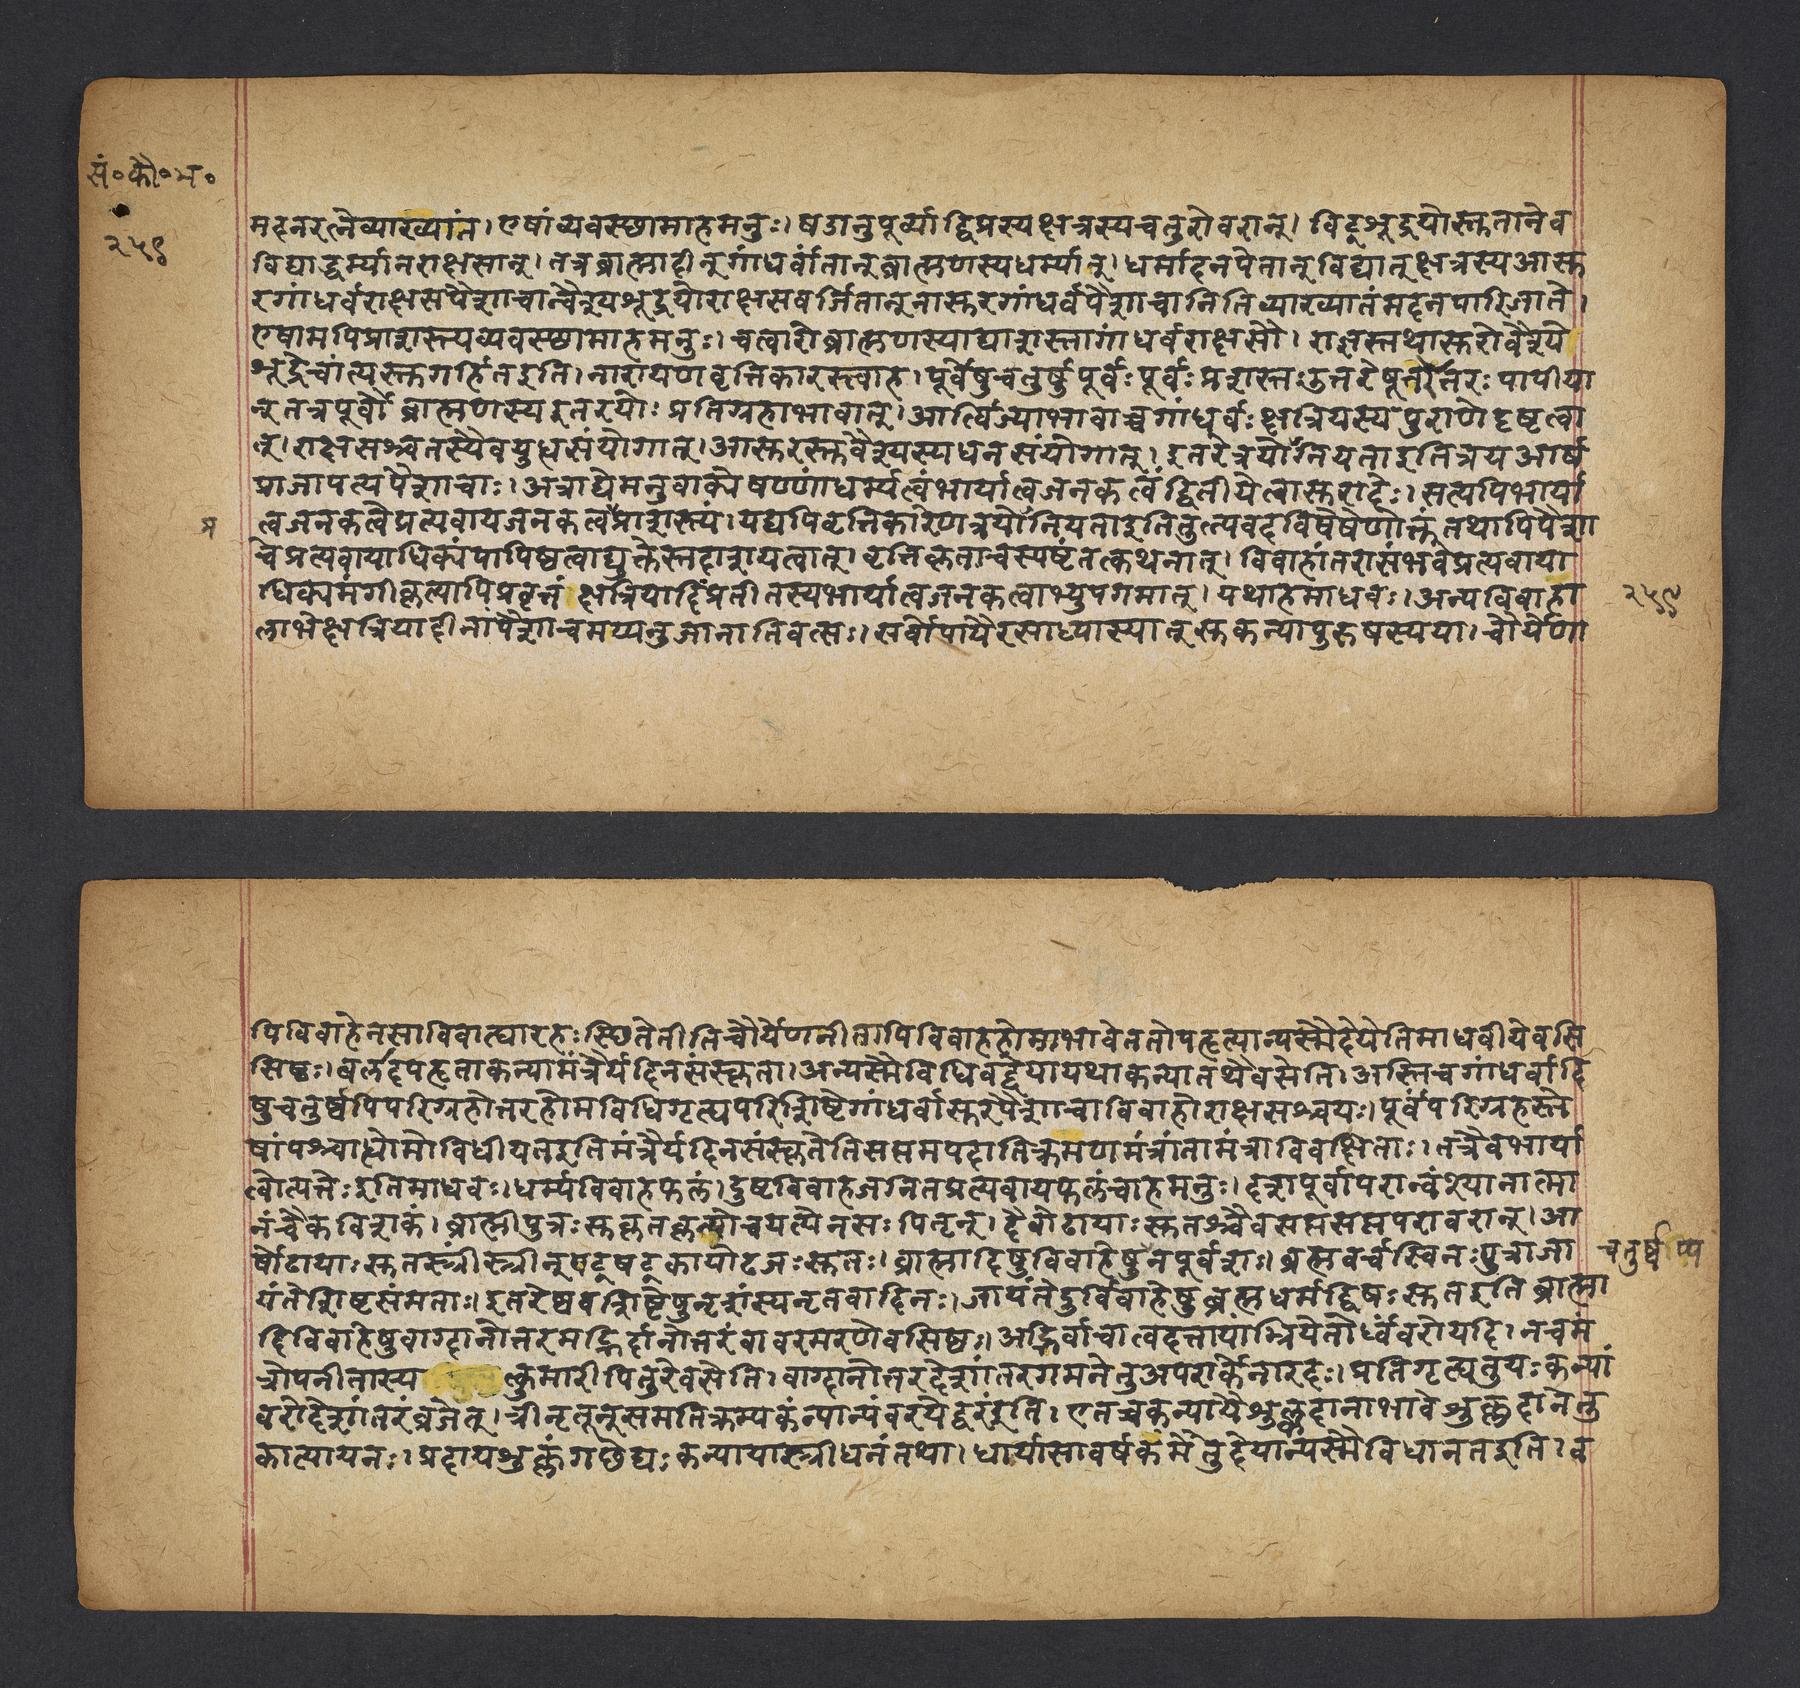 सं॰कौ॰म॰
२५९
मदनरत्नेव्याख्यातं। एषांव्यवस्छामाहमनुः। षडानुपूर्व्याद्विप्रस्यक्षत्रस्यचतुरोवरान्। विट्शूद्रयोस्तुतानेव
विद्याद्धर्म्यान्नराक्षसान्। तत्रब्राह्मादीन्गांधर्वांतान्ब्राह्मणस्यधर्म्यान्। धर्मादनपेतान्विद्यात्क्षत्रस्यआसु
रगांधर्वराक्षसपैशाचान्वैश्यशूद्रयोराक्षसवर्जितान्तासुरगांधर्वपैशाचानितिव्याख्यातंमदनपारिजाते।
एषामपिप्राशस्त्यव्यवस्छामाहमनुः। चत्वारोब्राह्मणस्याद्याशस्तागांधर्वराक्षसौ। राज्ञस्तथासुरोवैश्ये
शूद्रेचांत्यस्तुगर्हितइति। नारायणवृत्तिकारस्त्वाह। पूर्वेषुचतुर्षुपूर्वःपूर्वःप्रशस्तःउत्तरेषूत्तरोत्तरःपापीया
न्तत्रपूर्वौब्राह्मणस्यइतरयोःप्रतिग्रहाभावात्। आर्त्विज्याभावाच्चगांधर्वःक्षत्रियस्यपुराणेदृष्टत्वा
त्। राक्षसश्चतस्यैवयुधसंयोगात्। आसुरस्तुवैश्यस्यधनसंयोगात्। इतरेत्रयोनियताइतित्रयआर्ष
प्राजापत्यपैशाचाः। अत्राद्येमनुवाक्येषण्णांधर्म्यत्वंभार्यात्वजनकत्वंद्वितीयेत्वासुरादेः। सत्यपिभार्या
त्वजनकत्वेप्रत्यवायजनकत्वंप्राशस्त्यं। यद्यपिवृत्तिकारेणत्रयोनियताइतितुल्यवदविषेषेणोक्तंतथापिपैशा
प्र
चेप्रत्यवायाधिक्यंपापिष्ठत्वाद्युक्तेस्तदाशयत्वात्। वृत्तिकृताचस्पष्टंतत्कथनात्। विवाहांतरासंभवेप्रत्यवाया
धिक्यमंगीकृत्यापिप्रवृत्तं क्षत्रियादिंप्रतीतस्यभार्यात्वजनकत्वाभ्युपगमात्। यथाहमाधवः। अन्यविवाहा
२५९
लाभेक्षत्रियादीनांपैशाचमप्यनुजानातिवत्सः। सर्वोपायैरसाध्यास्यात्सुकन्यापुरुषस्यया। चौर्येणा
पिविवाहेनसाविवाह्यारहःस्छितेतीतिचौर्येणनीतापिविवाहहोमाभावेततोपहृत्यान्यस्मैदेयेतिमाधवीयेवसि
सिष्ठः। बलादपहृताकन्यामंत्रैर्यदिनसंस्कृता। अन्यस्मैविधिवद्देयायथाकन्यातथैवसेति। अस्तिचगांधर्वादि
षुचतुर्ष्वपिपरिग्रहोत्तरहोमविधिगृह्यपरिशिष्टेगांधर्वासुरपैशाचाविवाहोराक्षसश्चयः। पूर्वंपरिग्रहस्ते
षांपश्चाद्धोमोविधीयतइतिमंत्रैर्यदिनसंस्कृतेतिसप्तमपदातिक्रमणमंत्रांतामंत्राविवक्षिताः। तत्रैवभार्या
त्वोत्पत्तेःइतिमाधवः। धर्म्यविवाहफलं। दुष्टविवाहजनितप्रत्यवायफलंचाहमनुः। दशपूर्वापरान्वंश्यानात्मा
नंचैकविंशकं। ब्राह्मीपुत्रःसुकृतकृन्मोचयत्येनसःपितॄन्। दैवोढायाःसुतश्चैवसप्तसप्तपरावरान्। आ
र्षोढायाःसुतस्त्रींस्त्रीन्षट्षट्कायोढजःसुतः। ब्राह्मादिषुविवाहेषुनपूर्वशः। ब्रह्मवर्चस्विनःपुत्राजा
चतुर्ष्वप्य
यंतेशिष्टसंमताः। इतरेष्ववशिष्टेषुनृशंस्यनृतवादिनः। जायंतेदुर्विवाहेषुब्रह्मधर्मद्विषःसुतइतिब्राह्मा
दिविवाहेषुवाग्दानोत्तरमद्भिर्दानोत्तरंवावरमरणेवसिष्ठः। अद्भिर्वाचाचदत्तायांम्रियेतोर्ध्वंवरोयदि। नचमं
त्रोपनीतास्या
त्कुमारीपितुरेवसेति। वाग्दानोत्तरदेशांतरगमनेतुअपरार्केनारदः। प्रतिगृह्यतुयःकन्यां
वरोदेशांतरंव्रजेत्। त्रीनृतून्समतिक्रम्यकन्यान्यंवरयेद्वरंइति। एतच्चकन्यायैशुल्कदानाभावेशुल्कदानेतु
कात्यायनः। प्रदायशुल्कंगछेद्यःकन्यायास्त्रीधनंतथा। धार्यासावर्षकमेतुदेयान्यस्मैविधानतइति। व